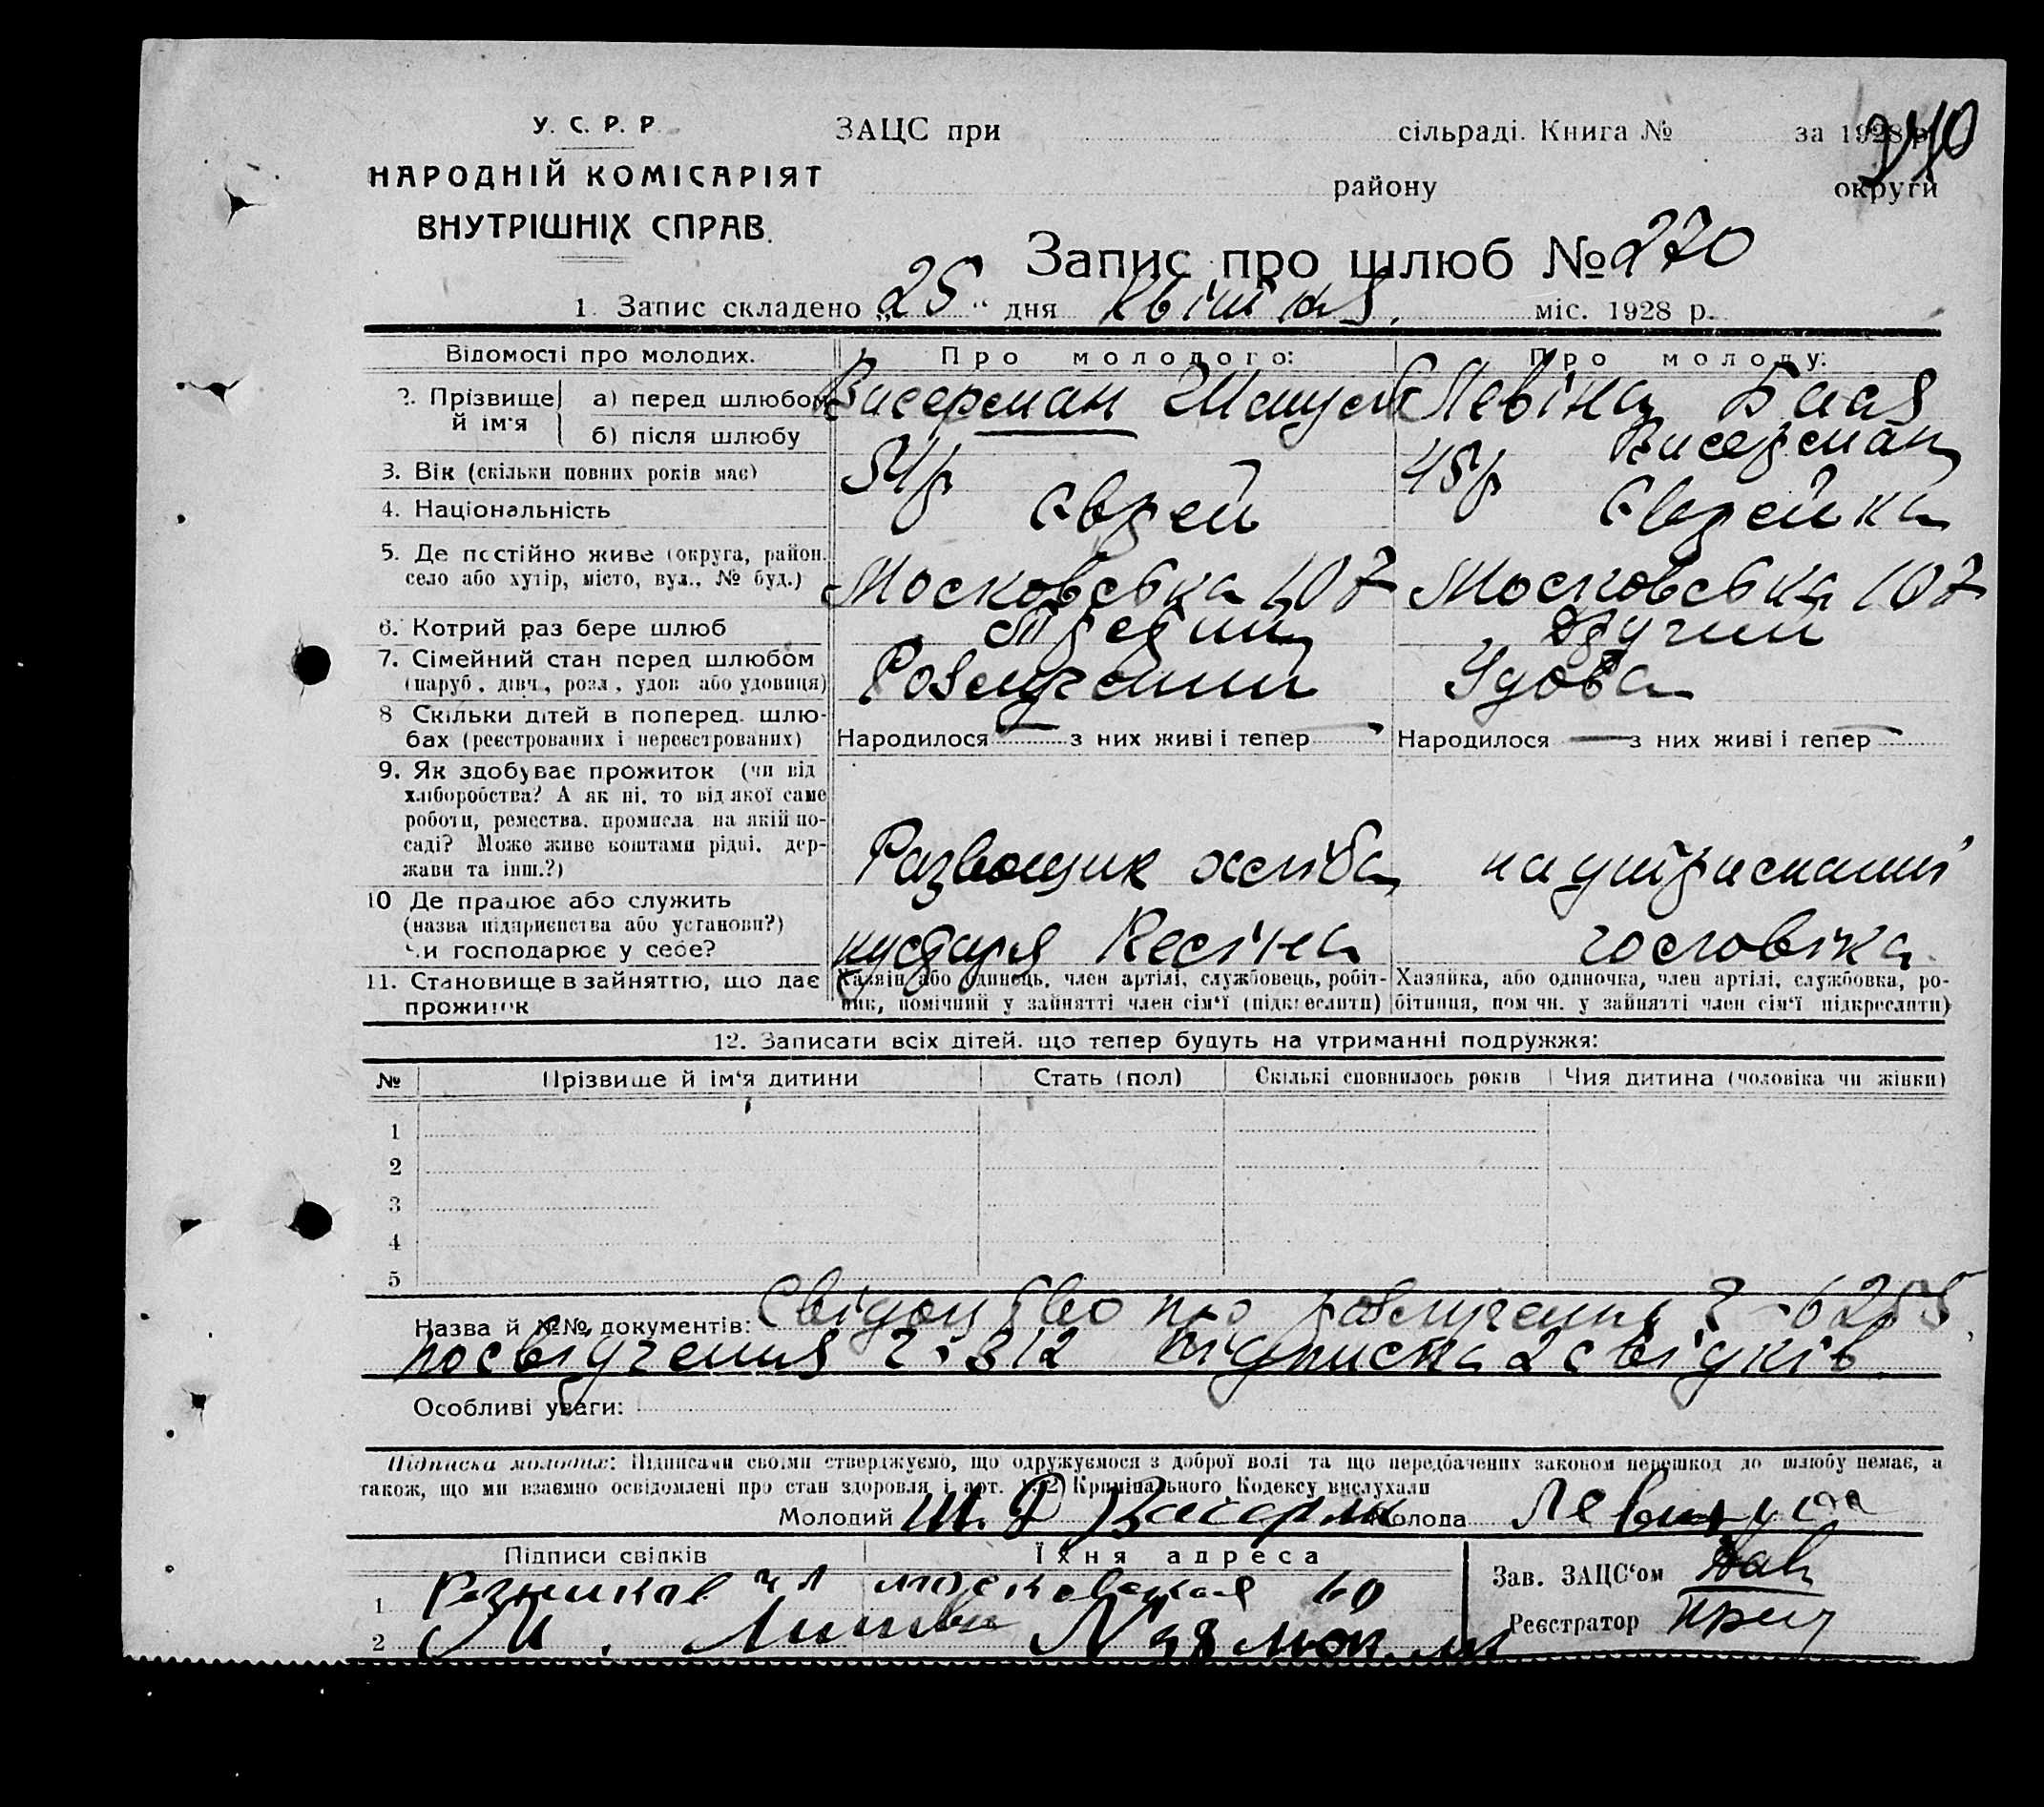 У. С. Р. Р.
НАРОДНІЙ КОМІСАРІЯТ
ВНУТРІШНІХ СПРАВ.
ЗАЦС при сільраді. Книга № за 1928 р.
району округи
Запис про шлюб № 270
1. Запис складено „25“ дня квітня міс. 1928 р.
Відомості про молодих. Про молодого: Про молоду:
2. Прізвище й ім'я
а) перед шлюбом Висерман Левіна Бася
б) після шлюбу Висерман
3. Вік (скільки повних років має) 54 р 45 р
4. Національність Єврей Єврейка
5. Де постійно живе (округа, район, село або хутір, місто, вул., № буд.) Московська 107 Московська 107
6. Котрий раз бере шлюб Третій Другий
7. Сімейний стан перед шлюбом (паруб., дівч., розл., удов. або удовиця) Розлучений Удова
8 Скільки дітей в поперед. шлюбах (реєстрованих і нереєстрованих) Народилося — з них живі і тепер — Народилося — з них живі і тепер —
9. Як здобуває прожиток (чи від
хліборобства? А як ні, то від якої саме
роботи, ремества, промисла, на якій по-
саді? Може живе коштами рідні, дер-
жави та інш.?) Развощик хліба на утриманні
10 Де працює або служить
(назва підприємства або установи?)
Чи господарює у себе? кустаря чоловіка
11. Становище в зайняттю, що дає прожиток
Хазяїн або одинець, член артілі, службовець, робіт-
ник, помічний у зайнятті член сім'ї (підкреслити)
Хазяйка, або одиночка, член артілі, службовка, ро-
бітниця, помічн. у зайнятті член сім'ї підкреслити)
12. Записати всіх дітей, що тепер будуть на утриманні подружжя:
№ Прізвище й ім'я дитини Стать (пол) Скількі сповнилось років Чия дитина (чоловіка чи жінки)
1
2
3
4
5
Назва й №№ документів: Свідоцтво про розлучення 6255
посвідчення 312 підписка 2 свідків.
Особливі уваги:
Підписка молодих: Підписами своїми стверджуємо, що одружуємося з доброї волі та що передбачених законом перешкод до шлюбу немає, а
також, що ми взаємно освідомлені про стан здоровля і арт. Кримінального Кодексу вислухали
Молодий Молода
Підписи свідків Їхня адреса
1 московская 60
2 М.
Зав. ЗАЦС'ом
Реєстратор